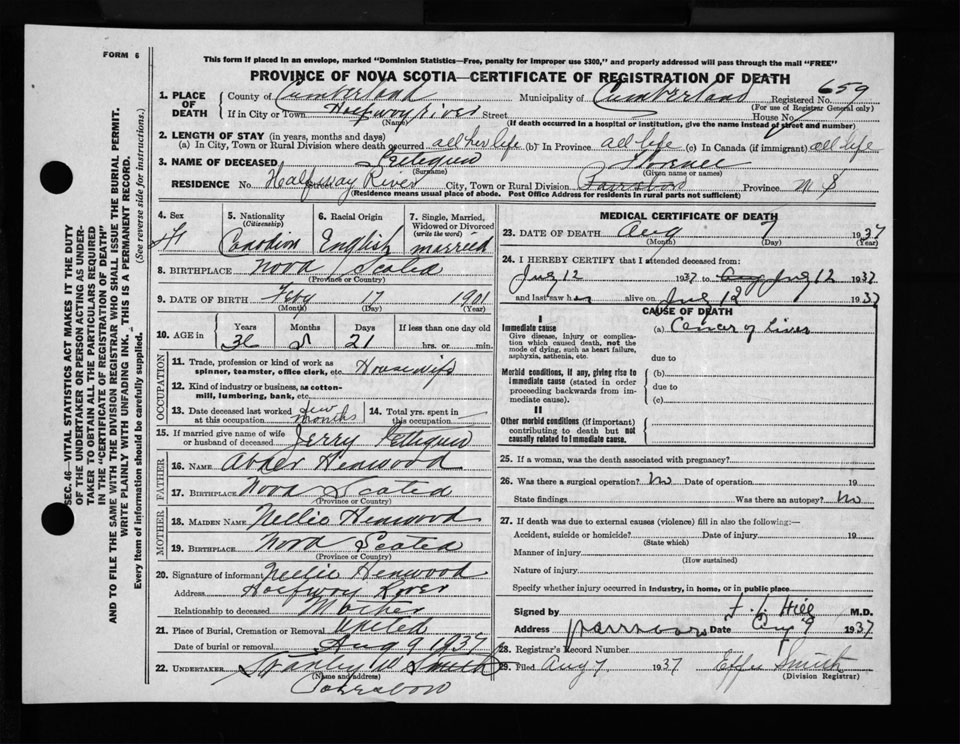 FORM 6
This form if placed in an envelope, marked "Dominion Statistics—Free, penalty for improper use $300," and properly addressed will pass through the mail "FREE"
PROVINCE OF NOVA SCOTIA—CERTIFICATE OF REGISTRATION OF DEATH
SEC. 46—VITAL STATISTICS ACT MAKES IT THE DUTY
OF THE UNDERTAKER OR PERSON ACTING AS UNDER-
TAKER TO OBTAIN ALL THE PARTICULARS REQUIRED
IN THE "CERTIFICATE OF REGISTRATION OF DEATH"
AND TO FILE THE SAME WITH THE DIVISION REGISTRAR WHO SHALL ISSUE THE BURIAL PERMIT.
WRITE PLAINLY WITH UNFADING INK. THIS IS A PERMANENT RECORD.
Every item of information should be carefully supplied. (See reverse side for instructions.)
1. PLACE OF DEATH County of Cumberland Municipality of Cumberland Registered No. 659
(For use of Registrar General only)
If in City or Town Halfway River Street House No.
(Name) (If death occurred in a hospital or institution, give the name instead of street and number)
2. LENGTH OF STAY (in years, months and days)
(a) In City, Town or Rural Division where death occurred all her life (b) In Province all life (c) In Canada (if immigrant) all life
3. NAME OF DECEASED Florence
(Surname) (Given name or names)
RESIDENCE No. Street Halfway River City, Town or Rural Division Parrsboro Province N S
(Residence means usual place of abode. Post Office Address for residents in rural parts not sufficient)
4. Sex 5. Nationality 6. Racial Origin 7. Single, Married,
(Citizenship) Widowed or Divorced
(write the word)
F Canadian English married
8. BIRTHPLACE Nova Scotia
(Province or Country)
9. DATE OF BIRTH Feby 17 1901
(Month) (Day) (Year)
10. AGE IN Years Months Days If less than one day old
36 5 21 hrs. or min.
OCCUPATION
11. Trade, profession or kind of work as
spinner, teamster, office clerk, etc. Housewife
12. Kind of industry or business, as cotton-
mill, lumbering, bank, etc.
13. Date deceased last worked at this occupation few months 14. Total yrs. spent in this occupation
15. If married give name of wife
or husband of deceased Jerry
FATHER
16. NAME Abner Henwood
17. BIRTHPLACE Nova Scotia
(Province or Country)
MOTHER
18. MAIDEN NAME Nellie Henwood
19. BIRTHPLACE Nova Scotia
(Province or Country)
20. Signature of informant Nellie Henwood
Address Halfway River
Relationship to deceased Mother
21. Place of Burial, Cremation or Removal United
Date of burial or removal Aug 9 1937
22. UNDERTAKER Stanley W Smith
(Name and address)
Parrsboro
MEDICAL CERTIFICATE OF DEATH
23. DATE OF DEATH Aug 7 1937
(Month) (Day) (Year)
24. I HEREBY CERTIFY that I attended deceased from:
July 12 1937 to Aug July 12 1937
and last saw her alive on July 12 1937
CAUSE OF DEATH
I
Immediate cause (a) Cancer of Liver
Give disease, injury or complica-
tion which caused death, not the
mode of dying, such as heart failure,
asphyxia, asthenia, etc. due to
Morbid conditions, if any, giving rise to (b)
immediate cause (stated in order due to
proceeding backwards from im-
mediate cause). (c)
II
Other morbid conditions (if important)
contributing to death but not
causally related to immediate cause.
25. If a woman, was the death associated with pregnancy?
26. Was there a surgical operation? No Date of operation 19
State findings Was there an autopsy? No
27. If death was due to external causes (violence) fill in also the following:—
Accident, suicide or homicide? Date of injury 19
(State which)
Manner of injury
(How sustained)
Nature of injury
Specify whether injury occurred in industry, in home, or in public place
Signed by F. L. Hill M.D.
Address Parrsboro Date Aug 9 1937
28. Registrar's Record Number
29. Filed Aug 7 1937 Effie Smith
(Division Registrar)